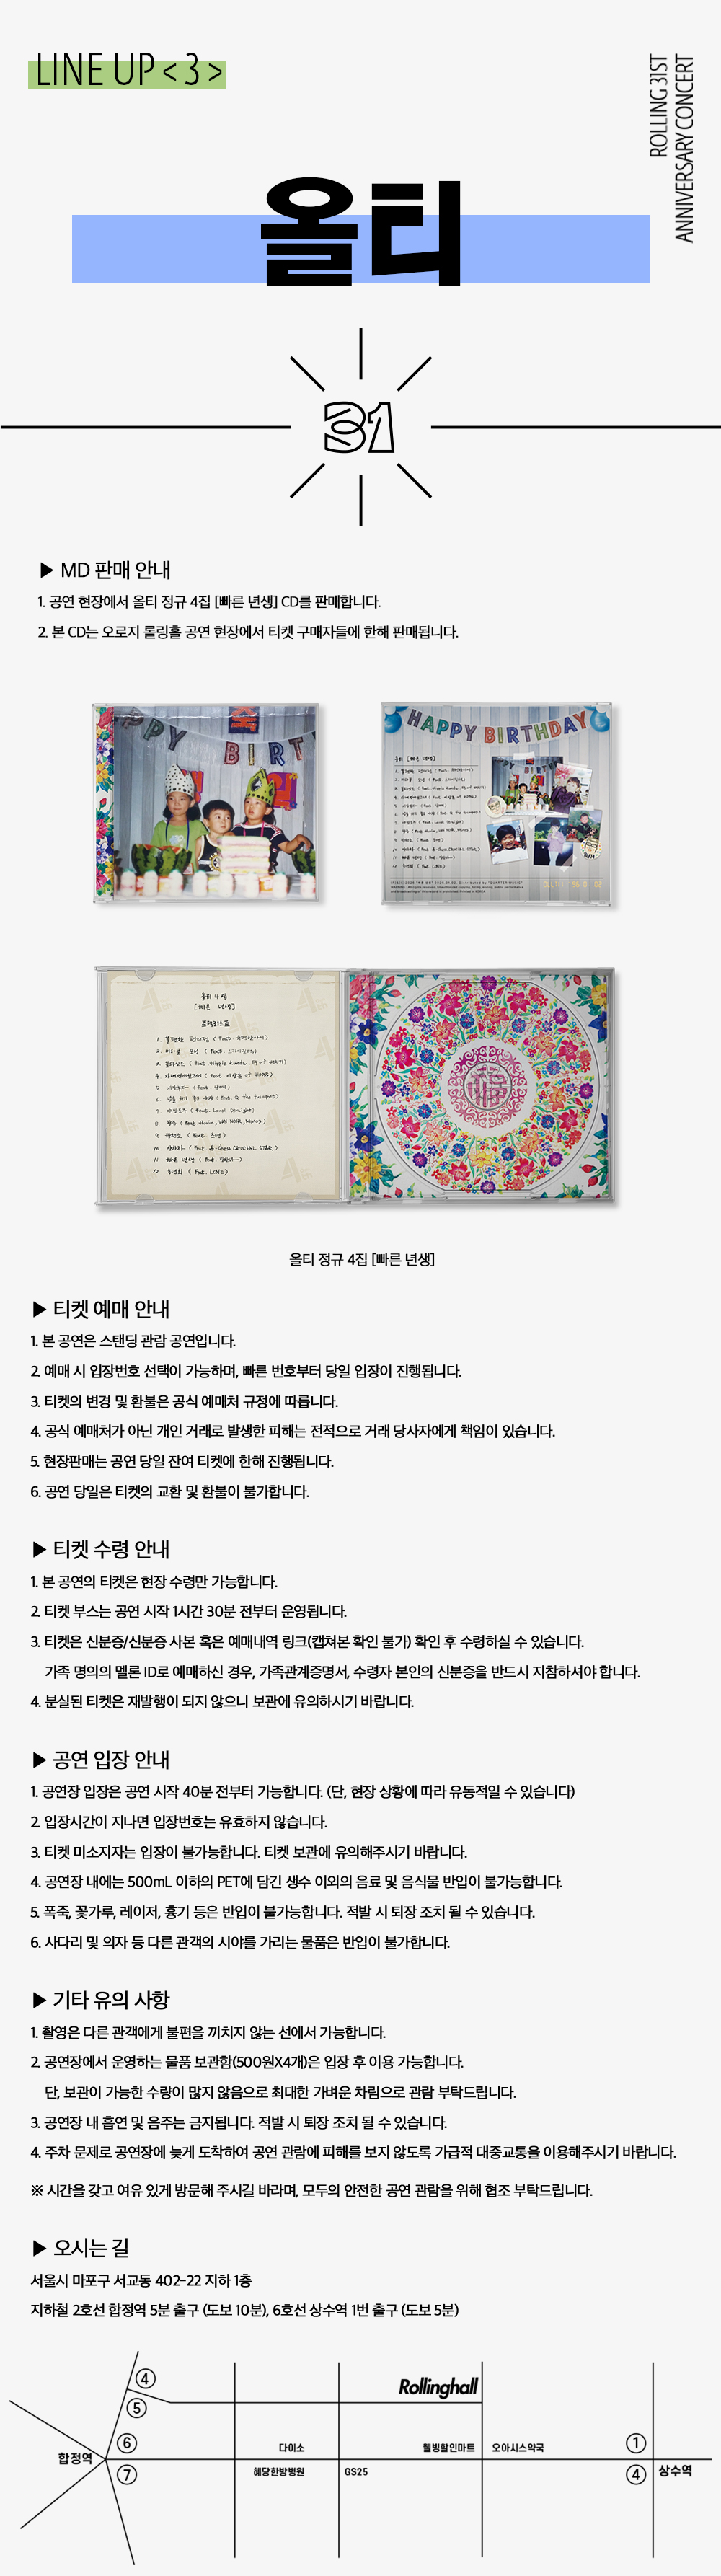 LINE UP < 3 >
ROLLING 31ST
ANNIVERSARY CONCERT
올티
31
▶ MD 판매 안내
1. 공연 현장에서 올티 정규 4집 [빠른 년생] CD를 판매합니다.
2. 본 CD는 오로지 롤링홀 공연 현장에서 티켓 구매자들에 한해 판매됩니다.
PPY BIRT
HAPPY BIRTHDAY
올티 [빠른 년생]
올티 4집
[빠른 년생]
트랙리스트
올티 정규 4집 [빠른 년생]
▶ 티켓 예매 안내
1. 본 공연은 스탠딩 관람 공연입니다.
2. 예매 시 입장번호 선택이 가능하며, 빠른 번호부터 당일 입장이 진행됩니다.
3. 티켓의 변경 및 환불은 공식 예매처 규정에 따릅니다.
4. 공식 예매처가 아닌 개인 거래로 발생한 피해는 전적으로 거래 당사자에게 책임이 있습니다.
5. 현장판매는 공연 당일 잔여 티켓에 한해 진행됩니다.
6. 공연 당일은 티켓의 교환 및 환불이 불가합니다.
▶ 티켓 수령 안내
1. 본 공연의 티켓은 현장 수령만 가능합니다.
2. 티켓 부스는 공연 시작 1시간 30분 전부터 운영됩니다.
3. 티켓은 신분증/신분증 사본 혹은 예매내역 링크(캡쳐본 확인 불가) 확인 후 수령하실 수 있습니다.
가족 명의의 멜론 ID로 예매하신 경우, 가족관계증명서, 수령자 본인의 신분증을 반드시 지참하셔야 합니다.
4. 분실된 티켓은 재발행이 되지 않으니 보관에 유의하시기 바랍니다.
▶ 공연 입장 안내
1. 공연장 입장은 공연 시작 40분 전부터 가능합니다. (단, 현장 상황에 따라 유동적일 수 있습니다)
2. 입장시간이 지나면 입장번호는 유효하지 않습니다.
3. 티켓 미소지자는 입장이 불가능합니다. 티켓 보관에 유의해주시기 바랍니다.
4. 공연장 내에는 500mL 이하의 PET에 담긴 생수 이외의 음료 및 음식물 반입이 불가능합니다.
5. 폭죽, 꽃가루, 레이저, 흉기 등은 반입이 불가능합니다. 적발 시 퇴장 조치 될 수 있습니다.
6. 사다리 및 의자 등 다른 관객의 시야를 가리는 물품은 반입이 불가합니다.
▶ 기타 유의 사항
1. 촬영은 다른 관객에게 불편을 끼치지 않는 선에서 가능합니다.
2. 공연장에서 운영하는 물품 보관함(500원X4개)은 입장 후 이용 가능합니다.
단, 보관이 가능한 수량이 많지 않음으로 최대한 가벼운 차림으로 관람 부탁드립니다.
3. 공연장 내 흡연 및 음주는 금지됩니다. 적발 시 퇴장 조치 될 수 있습니다.
4. 주차 문제로 공연장에 늦게 도착하여 공연 관람에 피해를 보지 않도록 가급적 대중교통을 이용해주시기 바랍니다.
※ 시간을 갖고 여유 있게 방문해 주시길 바라며, 모두의 안전한 공연 관람을 위해 협조 부탁드립니다.
▶ 오시는 길
서울시 마포구 서교동 402-22 지하 1층
지하철 2호선 합정역 5분 출구 (도보 10분), 6호선 상수역 1번 출구 (도보 5분)
④
⑤
Rollinghall
⑥
합정역
⑦
다이소
혜당한방병원
GS25
웰빙할인마트
오아시스약국
①
④
상수역